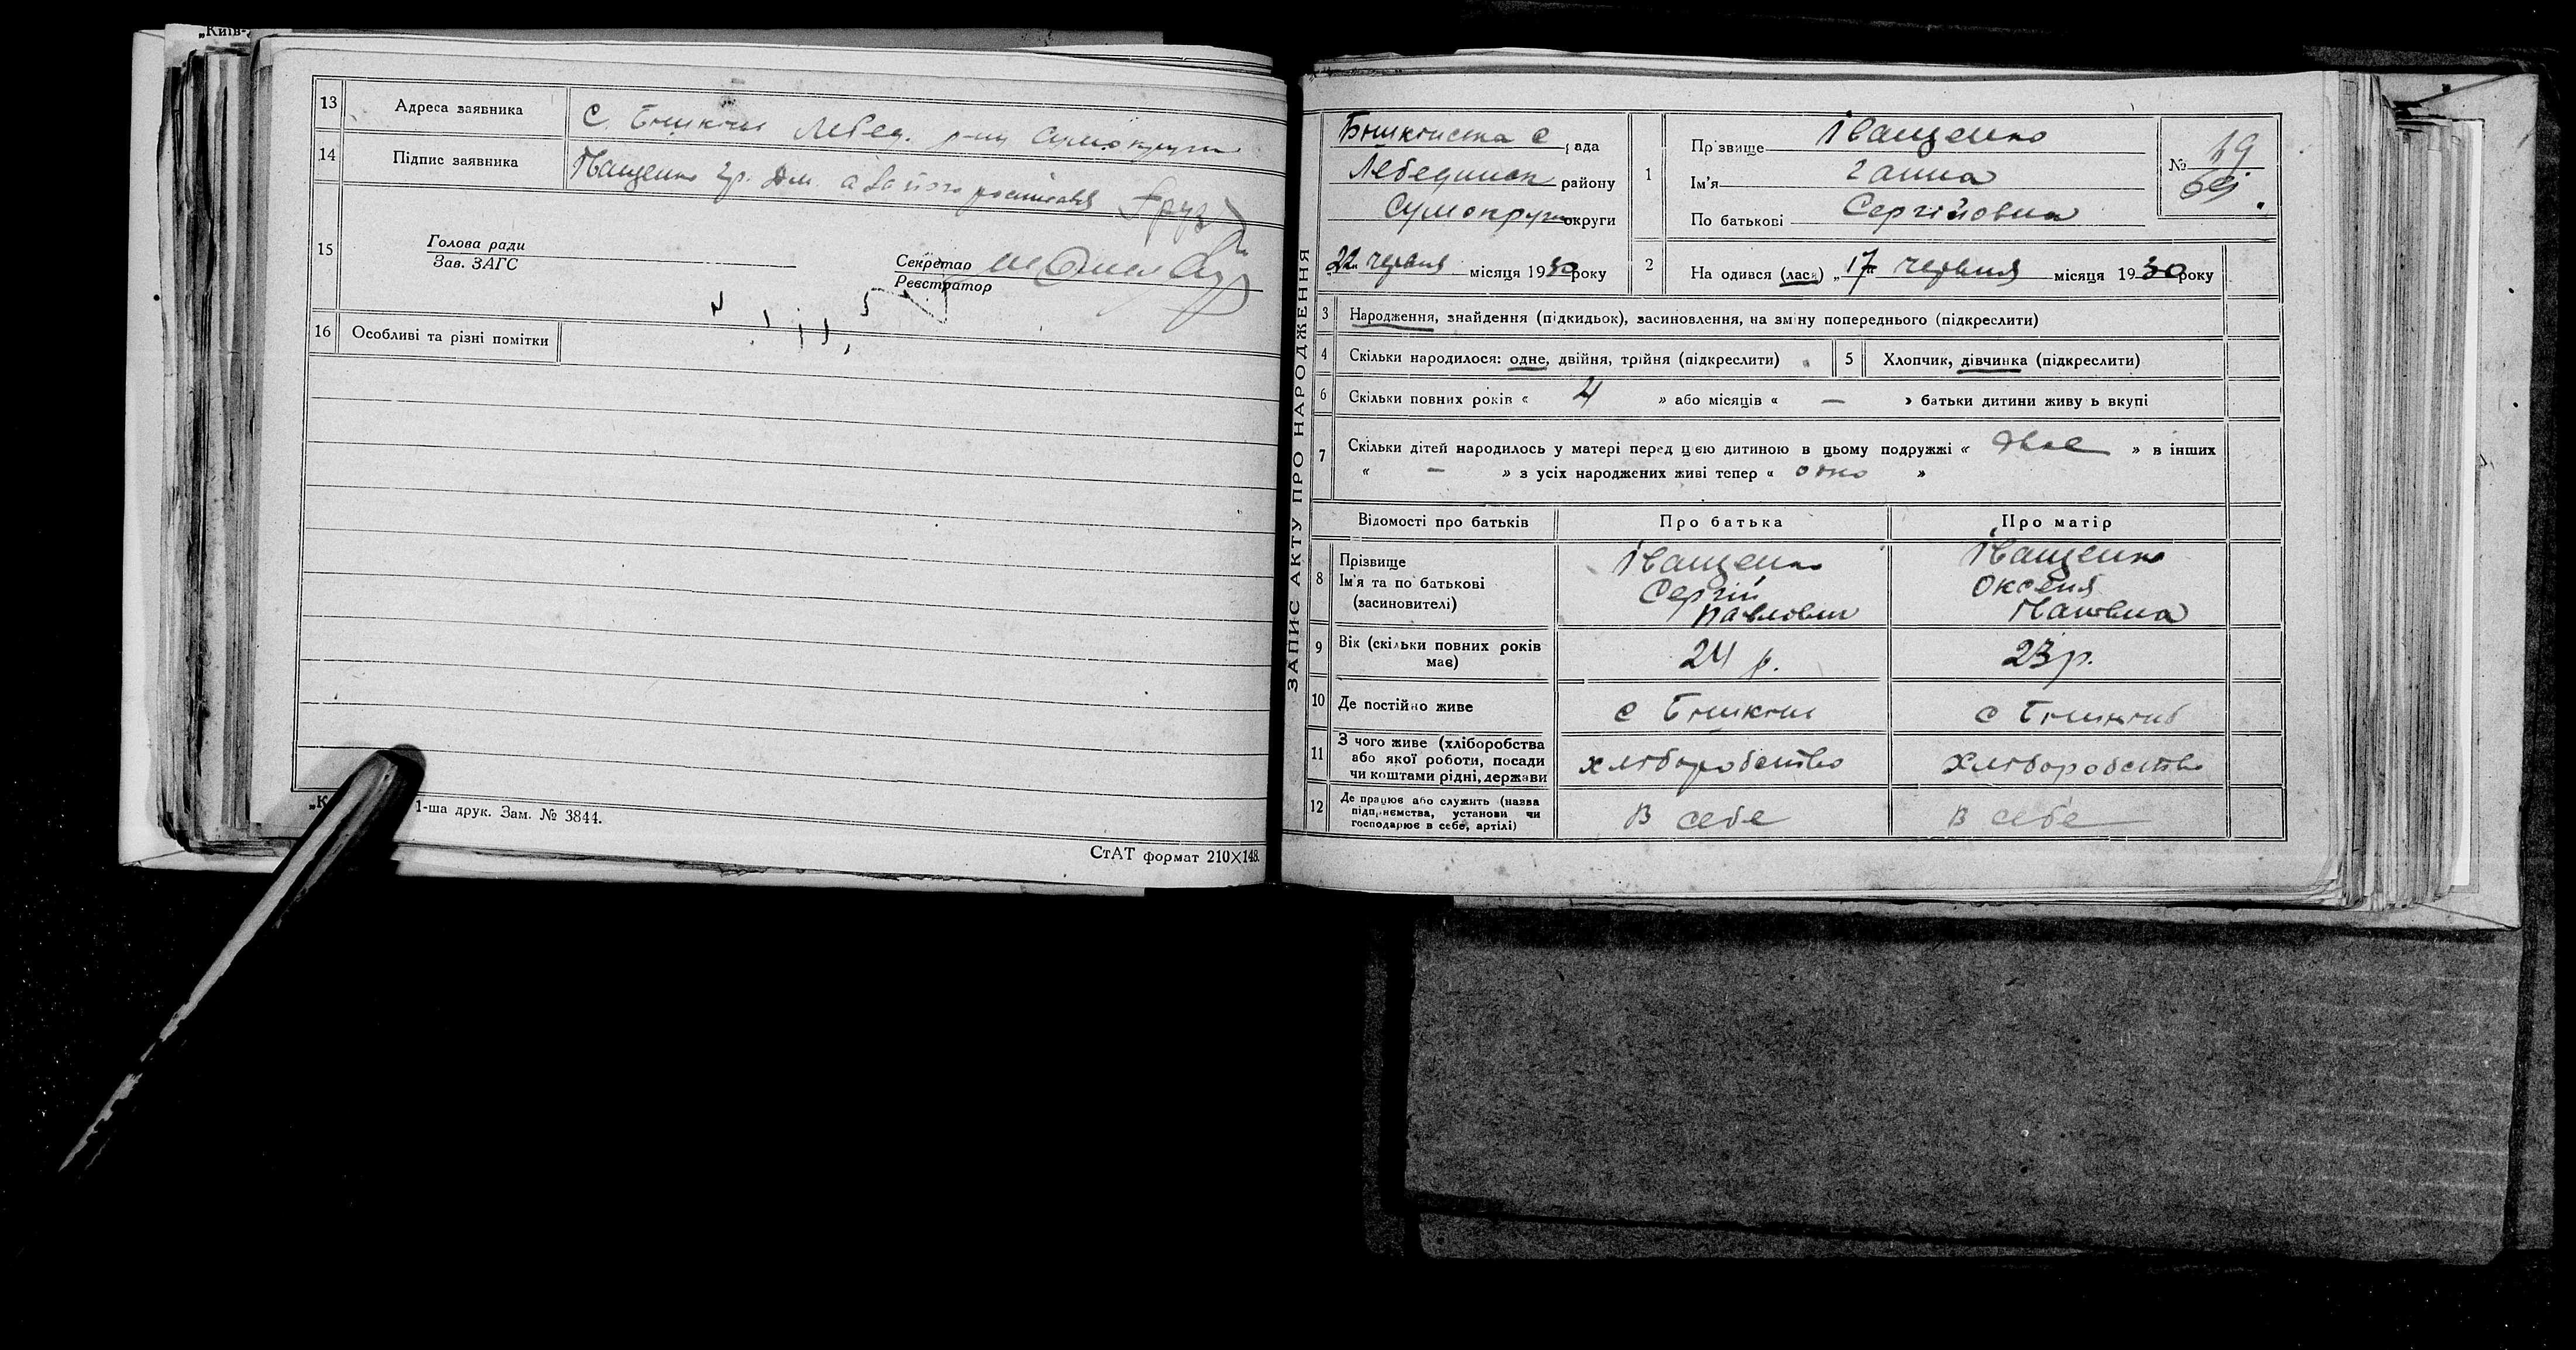 „Київ-
13 Адреса заявника С. Бишкінь Лебед. р-ну Сумокруги
14 Підпис заявника Іващенко гр. а за його
15 Голова ради
Зав. ЗАГС
Секретар
Реєстратор
16 Особливі та різні помітки
1-ша друк. Зам. № 3844.
СтАТ формат 210×148.
ЗАПИС АКТУ ПРО НАРОДЖЕННЯ
Бишкінська с рада
Лебединськ району
Сумокруги округи
„22„ червня місяця 1930 року
1 Прізвище Іващенко
Ім'я Ганна
По батькові Сергіїовна
№ 69
2 На одився (лася) „17„ червня місяця 1930 року
3 Народження, знайдення (підкидьок), засиновлення, на зміну попереднього (підкреслити)
4 Скільки народилося: одне, двійня, трійня (підкреслити)
5 Хлопчик, дівчинка (підкреслити)
6 Скільки повних років « 4 » або місяців « — » батьки дитини живу ь вкупі
7 Скільки дітей народилось у матері перед цією дитиною в цьому подружжі « двоє » в інших
« — » з усіх народжених живі тепер « одно »
Відомості про батьків Про батька Про матір
8 Прізвище
Ім'я та по батькові
(засиновителі)
Іващенко
Сергій
Павлович
Іващенко
Оксенія
Івановна
9 Вік (скільки повних років
має)
24 р.
23 р.
10 Де постійно живе с Бишкінь с Бишкінь
11 З чого живе (хліборобства
або якої роботи, посади
чи коштами рідні, держави
хліборобство
хліборобство
12 Де працює або служить (назва
підприємства, установи чи
господарює в себе, артілі)
В себе
В себе